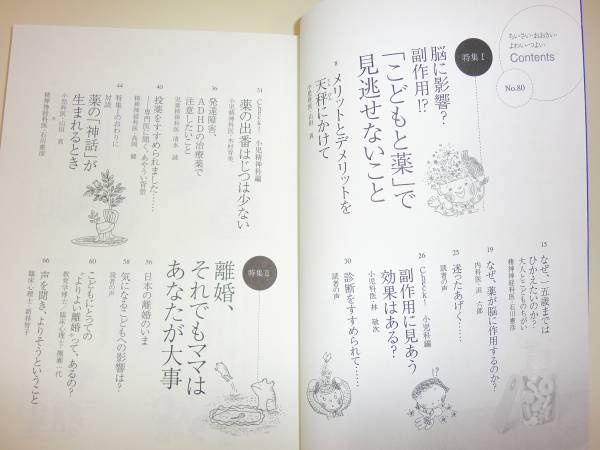 ちいさい・おおきい・
よわい・つよい
Contents
No.80
特集Ⅰ
脳に影響?
副作用!?
「こどもと薬」で
見逃せないこと
8
メリットとデメリットを
天秤にかけて
小児科医・山田 真
15
なぜ、一五歳までは
ひかえたいのか?
大人とこどものちがい
精神神経科医・石川憲彦
19
なぜ、薬が脳に作用するのか?
内科医・浜 六郎
25
迷ったあげく……
読者の声
26
Check! 小児科編
副作用に見あう
効果はある?
小児科医・林 敬次
30
診断をすすめられて……
読者の声
31
Check! 小児精神科編
薬の出番はじつは少ない
小児精神科医・木村育美
36
発達障害、
ADHDの治療薬で
注意したいこと
児童精神科医・清水 誠
40
投薬をすすめられました……
──専門医に聞く、あやうい背景
精神神経科医・高岡 健
44
特集Ⅰのおわりに
対談
薬の「神話」が
生まれるとき
小児科医・山田 真
精神神経科医・石川憲彦
特集Ⅱ
離婚、
それでもママは
あなたが大事
56
日本の離婚のいま
58
気になるこどもへの影響は?
読者の声
60
こどもにとっての
“よりよい離婚”って、あるの?
教育学博士・臨床心理士・棚瀬一代
66
声を聞き、よりそうということ
臨床心理士・新林智子